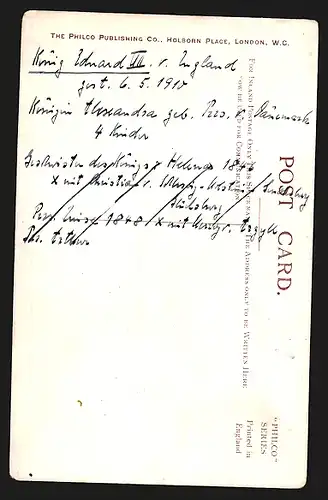 THE PHILCO PUBLISHING CO., HOLBORN PLACE, LONDON, W.C.
König Eduard VII. v. England
gest. 6. 5. 1910
Königin Alexandra geb. Prss. v. Dänemark
4 Kinder
Geschwister des Königs: Helena 1846
x mit Christian v.
Przs. Luise 1848 x mit Herzog v. Argyll
POST CARD.
FOR INLAND POSTAGE ONLY THIS SPACE MAY
BE USED FOR
THE ADDRESS ONLY TO BE WRITTEN HERE
"PHILCO"
SERIES
Printed in
England